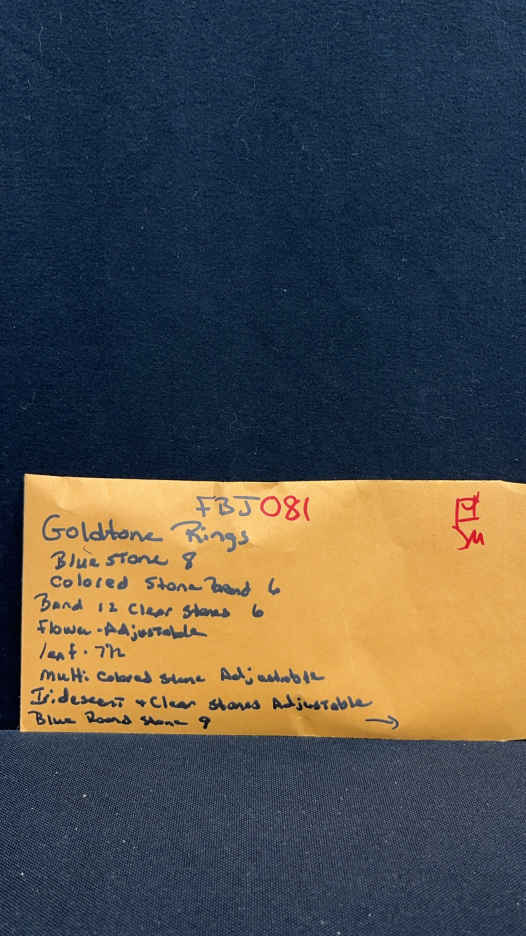 FBJ081
Goldtone Rings
Blue stone 8
Colored Stone Band 6
Band 12 Clear Stones 6
Flower - Adjustable
leaf - 7½
Multi colored stone Adjustable
Iridescent + Clear stones Adjustable
Blue Round stone 9
→